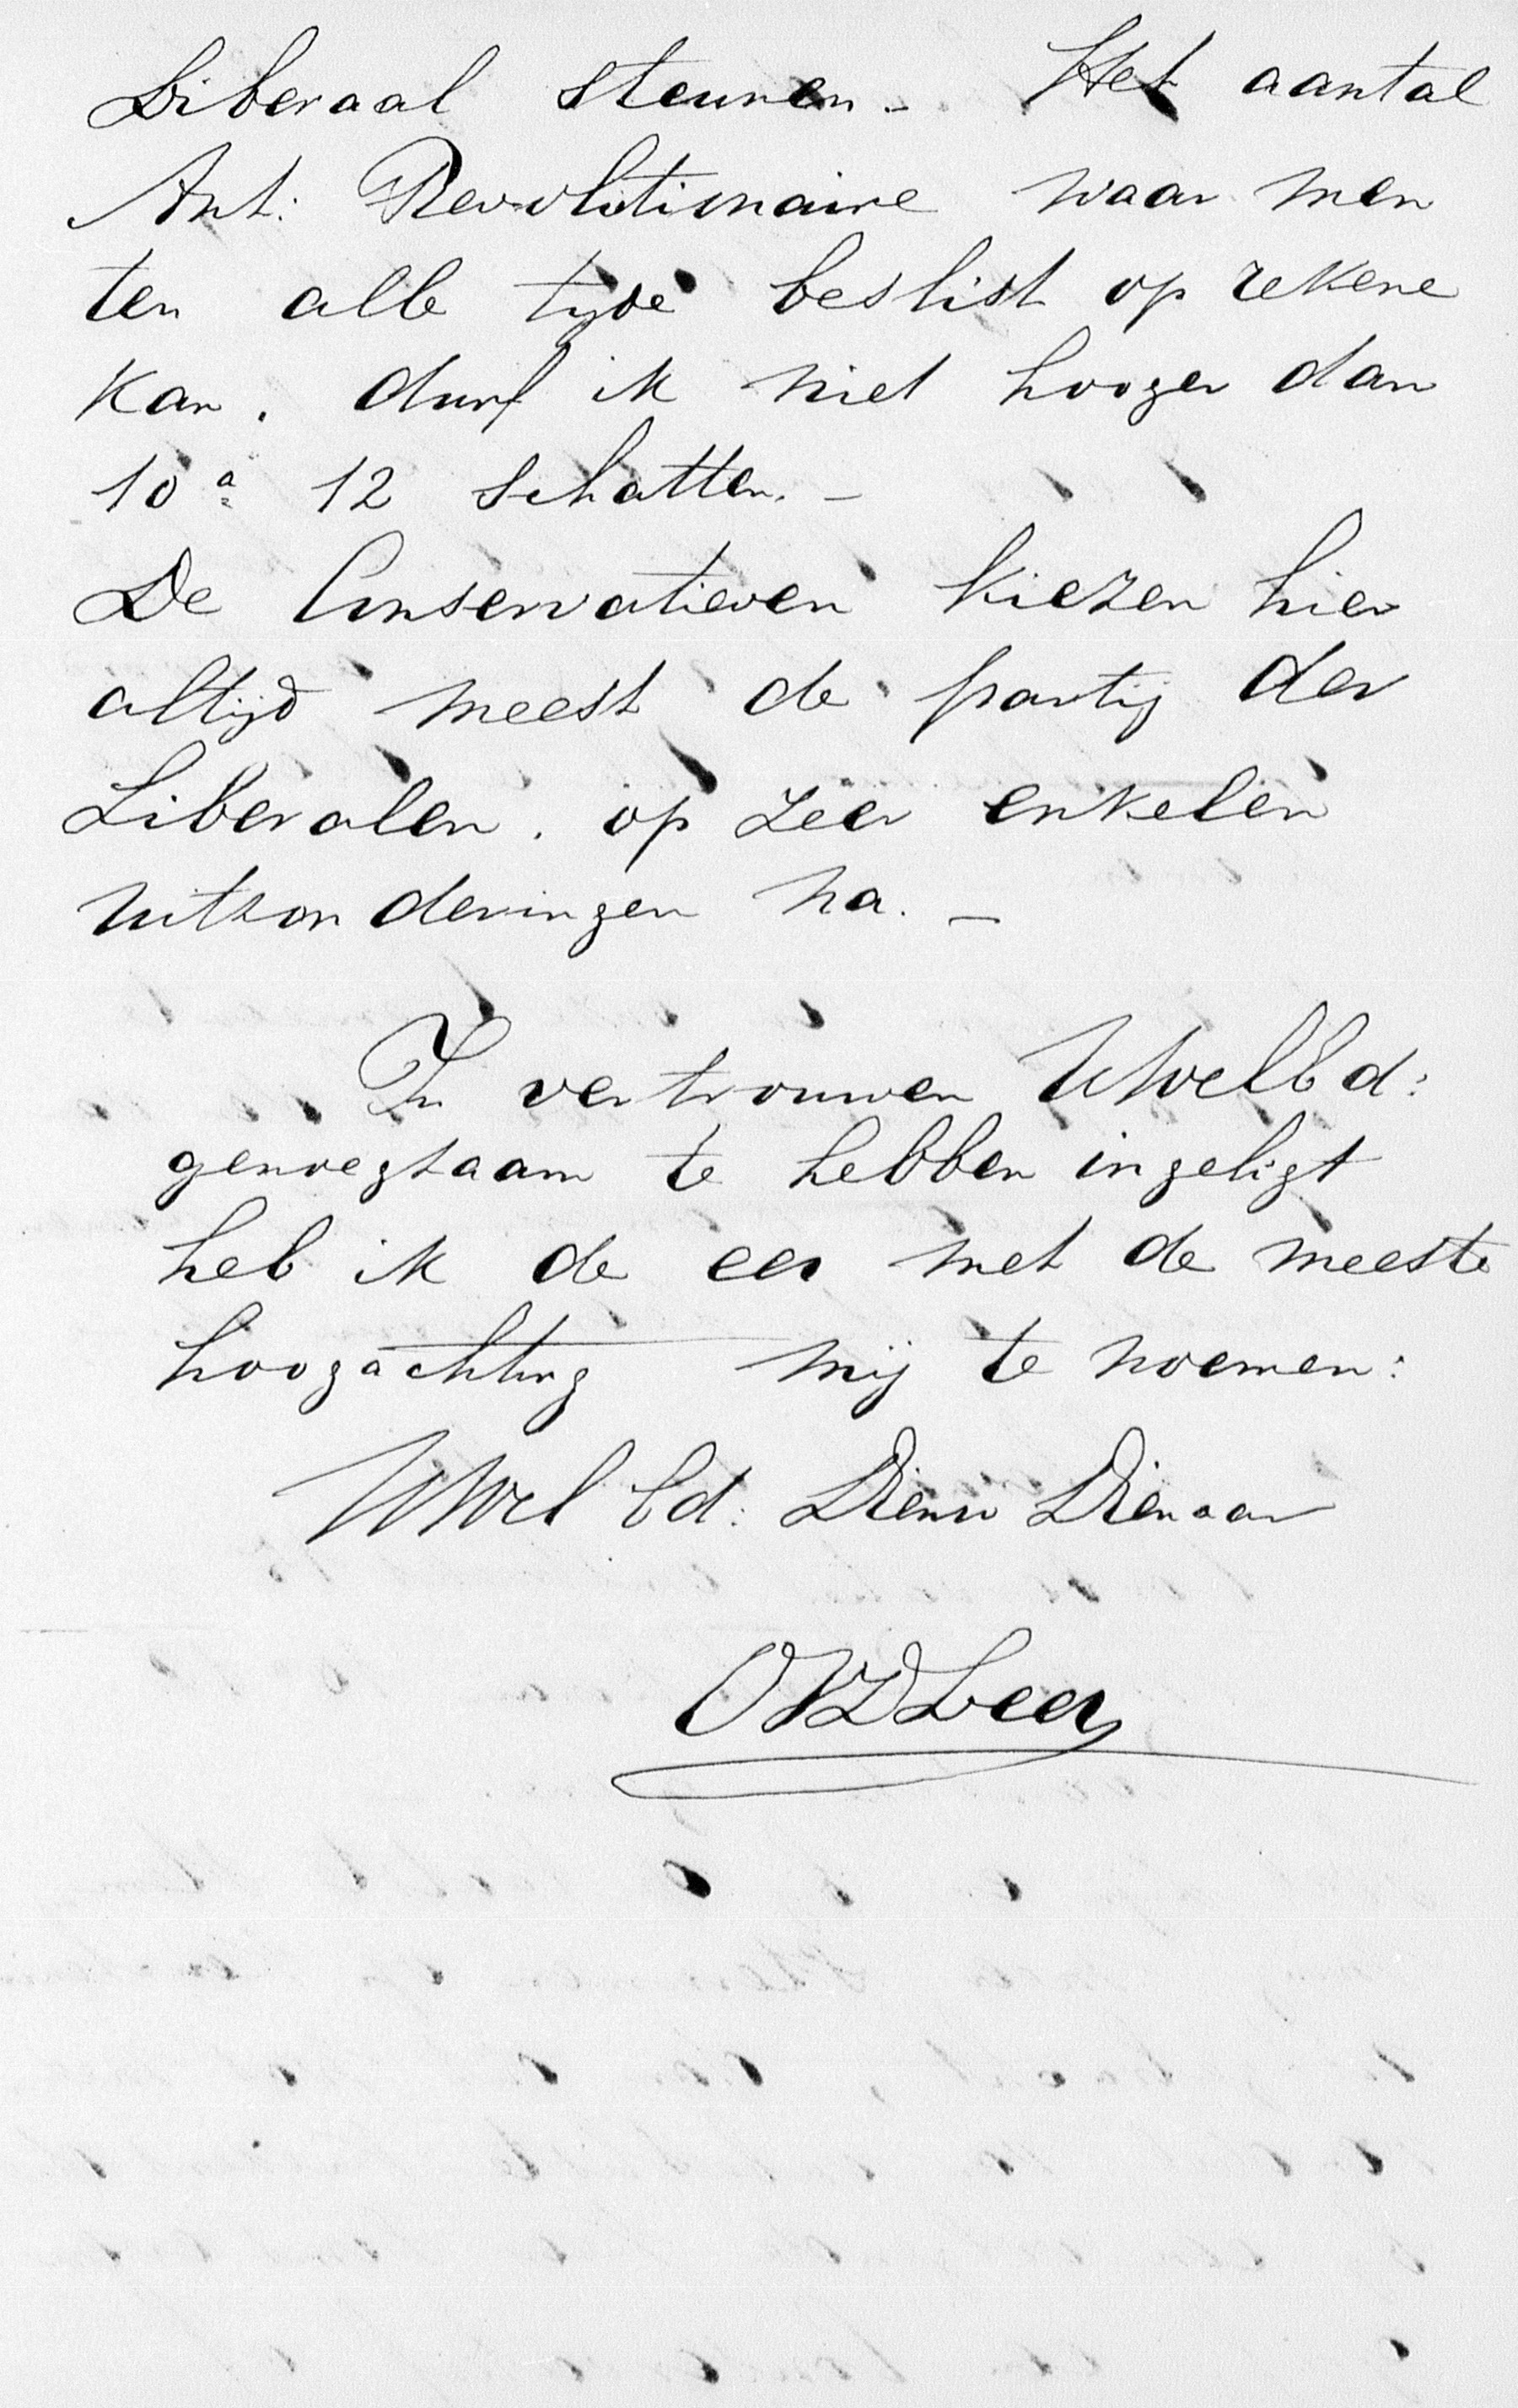 Liberaal steunen - Het aantal
Ant: Revolutionaire waar men
ten alle tyde beslist op rekene
kan. durf ik niet hooger dan
10 a 12 schatten. -
De Conservatieven kiezen hier
altijd meest de partij der
Liberalen. op zeer enkelen
uitzonderingen na. -
In vertrouwen UWelEd:
genoegzaam te hebben ingeligt
heb ik de eer met de meeste
hoogachting mij te noemen:
UWel Ed: Dienw Dienaar